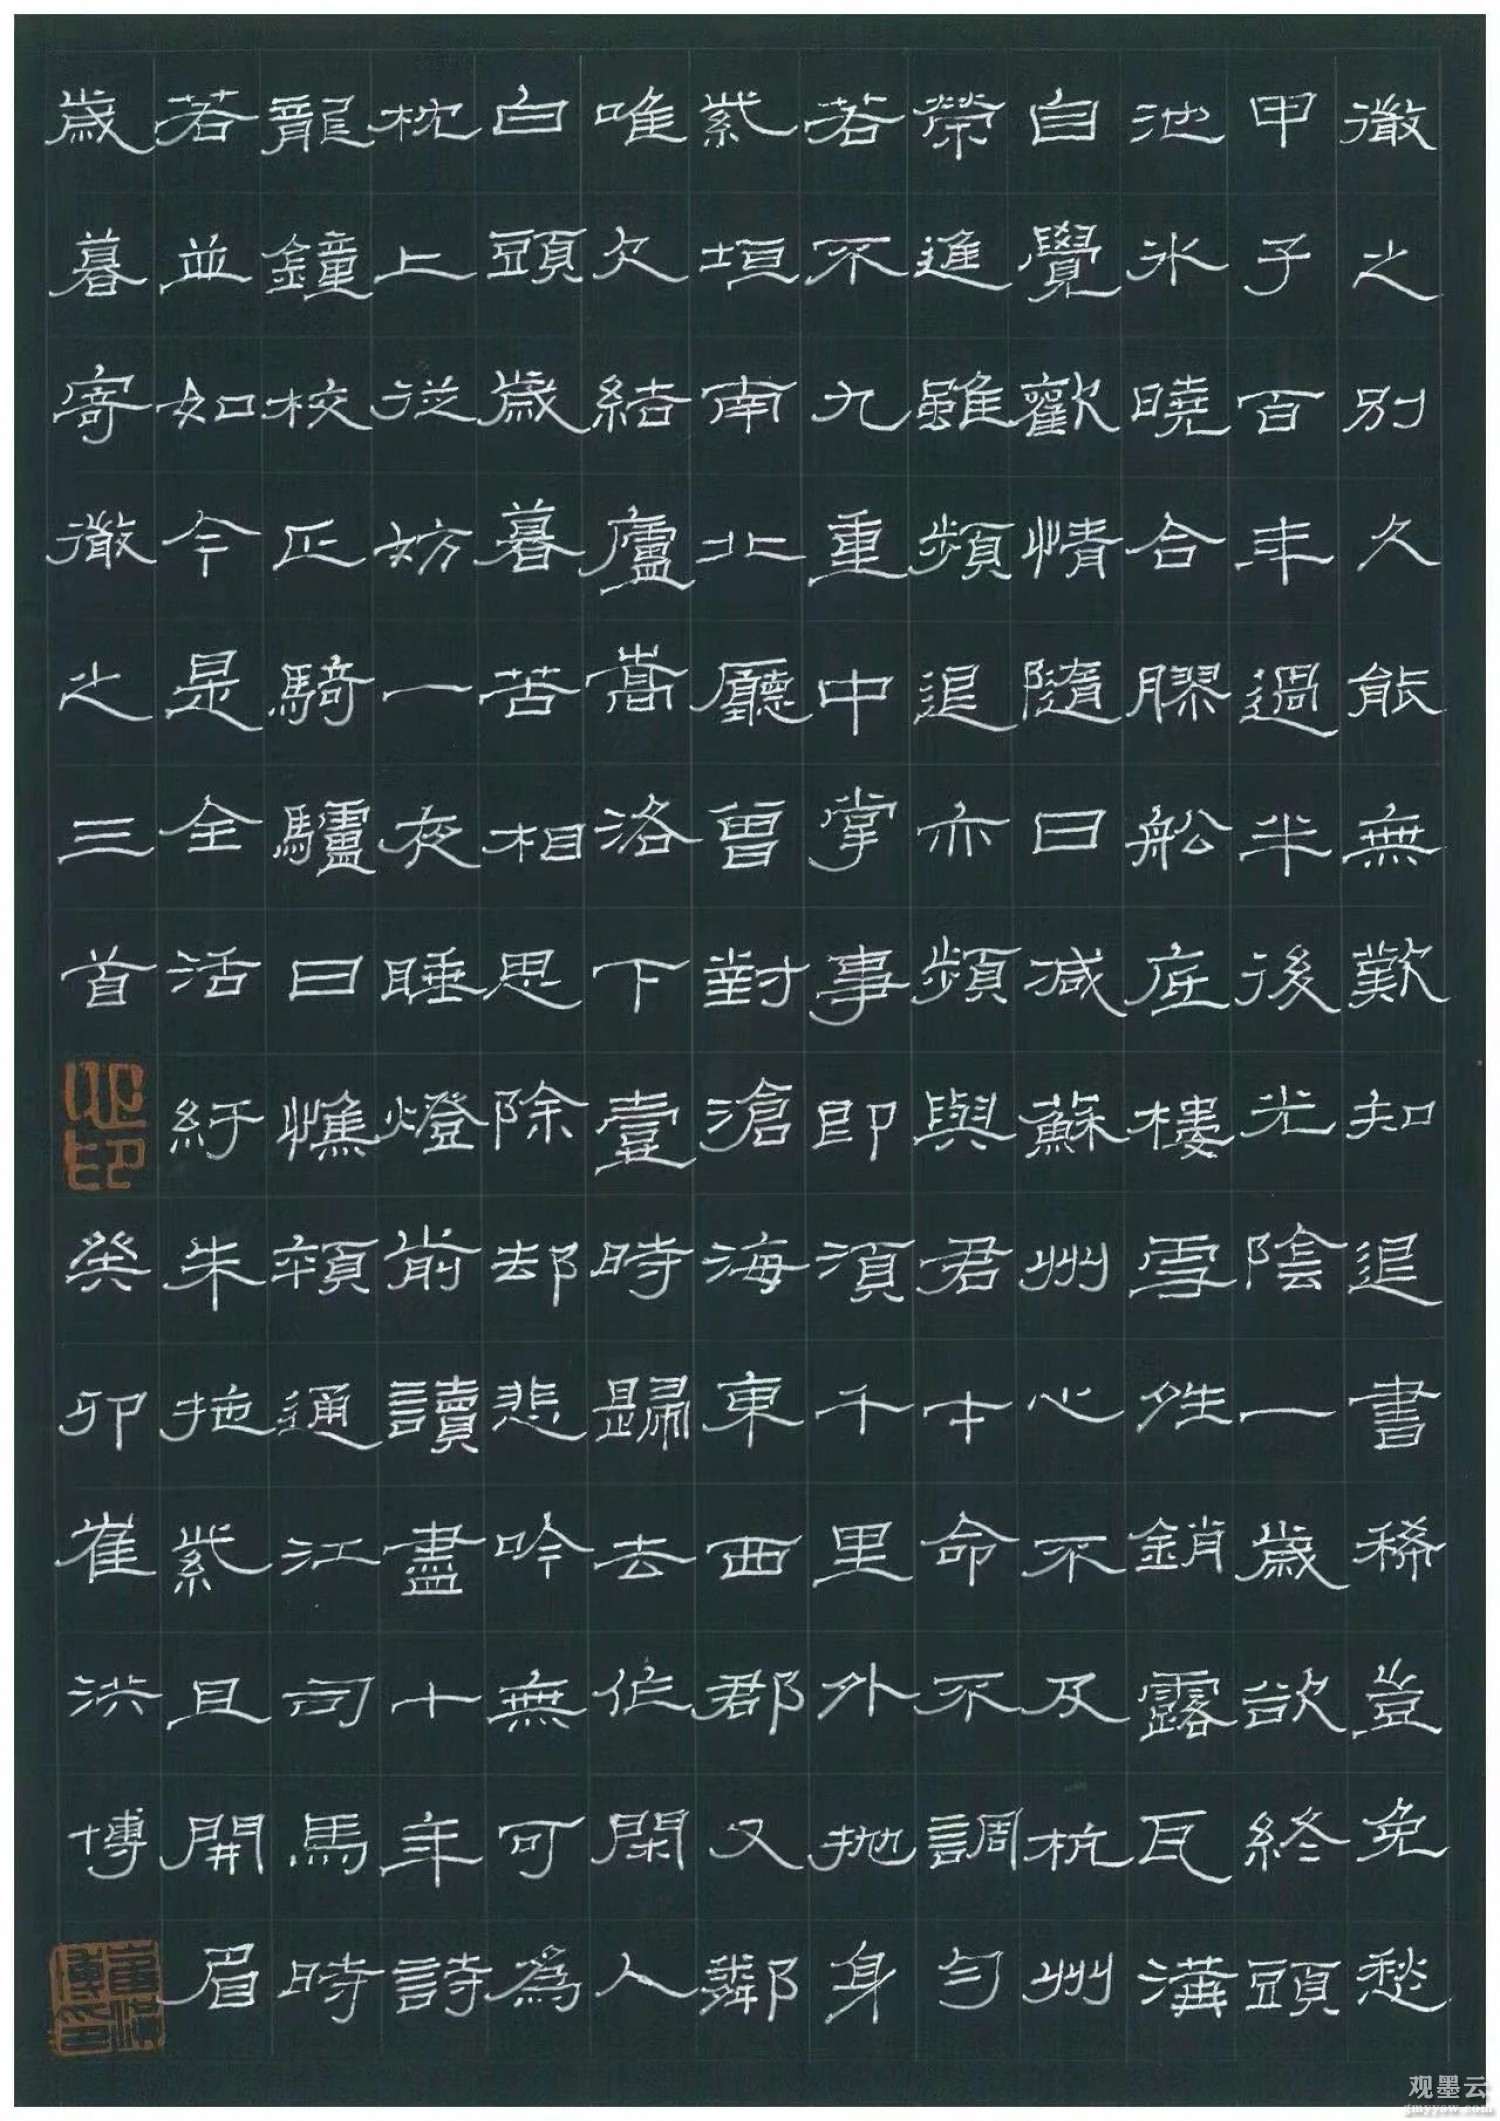 微之別久能無歎知退書稀豈免愁
甲子百年過半後光陰一歲欲終頭
池冰曉合膠船底樓雪夝銷露瓦溝
自覺歡情隨日減蘇州心不及杭州
榮進雖頻退亦頻與君才命不調勻
若不九重中掌事即須千里外拋身
紫垣南北廳曾對滄海東西郡又鄰
唯欠結廬嵩洛下壹時歸去作閑人
白頭歲暮苦相思除却悲吟無可為
枕上從妨一夜睡燈前讀盡十年詩
龍鐘校正騎驢日憔顇通江司馬時
若並如今是全活紆朱拖紫且開眉
歲暮寄微之三首
癸卯崔洪博
崔洪博印
观墨云
gmyysw.com